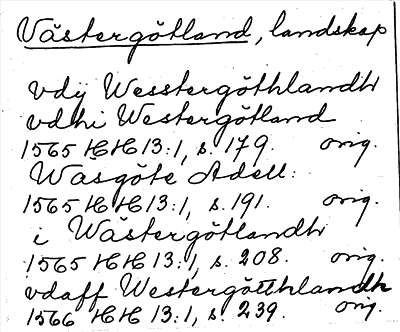 Västergötland, landskap
vdÿ Wesstergöthlandh
vdhi Westergötland
1565 HH 13:1, s. 179. orig.
Wäsgöte Adell.
1565 HH 13:1, s. 191. orig.
i Wästergötlandh
1565 HH 13:1, s. 208. orig.
vdaff Westergötthlandh
1566 HH 13:1, s. 239. orig.